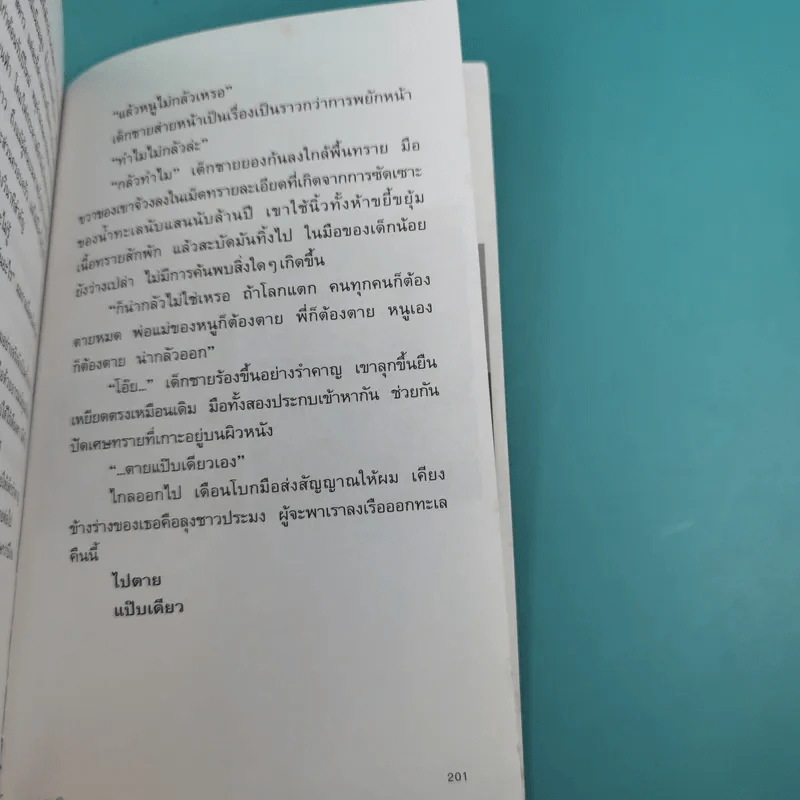 “แล้วหนูไม่กลัวเหรอ”
เด็กชายส่ายหน้าเป็นเรื่องเป็นราวกว่าการพยักหน้า
“ทำไมไม่กลัวล่ะ”
“กลัวทำไม” เด็กชายยองก้นลงใกล้พื้นทราย มือ
ขวาของเขาจ้วงลงในเม็ดทรายละเอียดที่เกิดจากการซัดเซาะ
ของน้ำทะเลนับแสนนับล้านปี เขาใช้นิ้วทั้งห้าขยี้ขยุ้ม
เนื้อทรายสักพัก แล้วสะบัดมันทิ้งไป ในมือของเด็กน้อย
ยังว่างเปล่า ไม่มีการค้นพบสิ่งใดๆ เกิดขึ้น
“ก็น่ากลัวไม่ใช่เหรอ ถ้าโลกแตก คนทุกคนก็ต้อง
ตายหมด พ่อแม่ของหนูก็ต้องตาย พี่ก็ต้องตาย หนูเอง
ก็ต้องตาย น่ากลัวออก”
“โอ๊ย...” เด็กชายร้องขึ้นอย่างรำคาญ เขาลุกขึ้นยืน
เหยียดตรงเหมือนเดิม มือทั้งสองประกบเข้าหากัน ช่วยกัน
ปัดเศษทรายที่เกาะอยู่บนผิวหนัง
“...ตายแป๊บเดียวเอง”
ไกลออกไป เดือนโบกมือส่งสัญญาณให้ผม เคียง
ข้างร่างของเธอคือลุงชาวประมง ผู้จะพาเราลงเรือออกทะเล
คืนนี้
ไปตาย
แป๊บเดียว
201